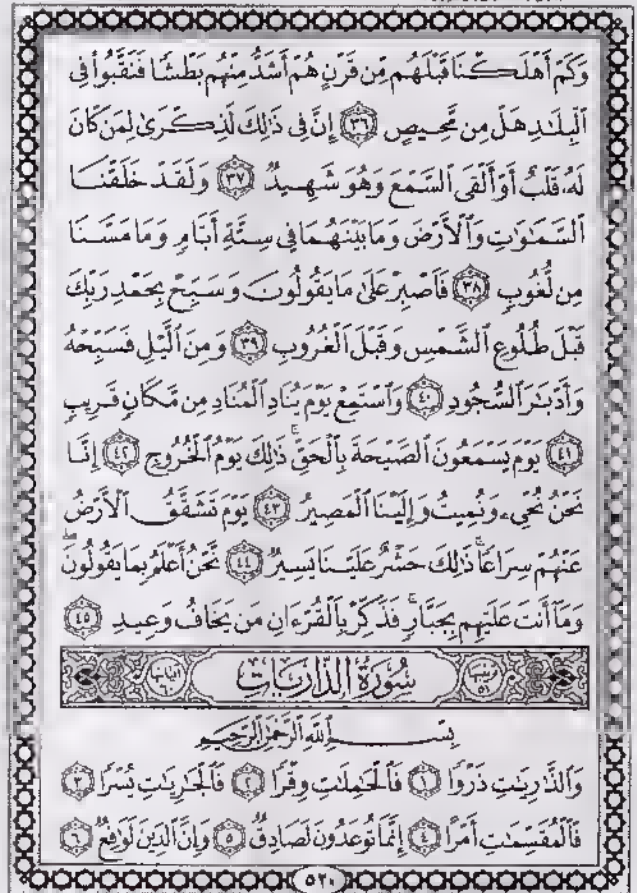 وَكَمْ أَهْلَكْنَا قَبْلَهُم مِّن قَرْنٍ هُمْ أَشَدُّ مِنْهُم بَطْشًا فَنَقَّبُوا۟ فِى
ٱلْبِلَٰدِ هَلْ مِن مَّحِيصٍ ٣٦ إِنَّ فِى ذَٰلِكَ لَذِكْرَىٰ لِمَن كَانَ
لَهُۥ قَلْبٌ أَوْ أَلْقَى ٱلسَّمْعَ وَهُوَ شَهِيدٌ ٣٧ وَلَقَدْ خَلَقْنَا
ٱلسَّمَٰوَٰتِ وَٱلْأَرْضَ وَمَا بَيْنَهُمَا فِى سِتَّةِ أَيَّامٍ وَمَا مَسَّنَا
مِن لُّغُوبٍ ٣٨ فَٱصْبِرْ عَلَىٰ مَا يَقُولُونَ وَسَبِّحْ بِحَمْدِ رَبِّكَ
قَبْلَ طُلُوعِ ٱلشَّمْسِ وَقَبْلَ ٱلْغُرُوبِ ٣٩ وَمِنَ ٱلَّيْلِ فَسَبِّحْهُ
وَأَدْبَٰرَ ٱلسُّجُودِ ٤٠ وَٱسْتَمِعْ يَوْمَ يُنَادِ ٱلْمُنَادِ مِن مَّكَانٍ قَرِيبٍ
٤١ يَوْمَ يَسْمَعُونَ ٱلصَّيْحَةَ بِٱلْحَقِّ ۚ ذَٰلِكَ يَوْمُ ٱلْخُرُوجِ ٤٢ إِنَّا
نَحْنُ نُحْىِۦ وَنُمِيتُ وَإِلَيْنَا ٱلْمَصِيرُ ٤٣ يَوْمَ تَشَقَّقُ ٱلْأَرْضُ
عَنْهُمْ سِرَاعًا ۚ ذَٰلِكَ حَشْرٌ عَلَيْنَا يَسِيرٌ ٤٤ نَّحْنُ أَعْلَمُ بِمَا يَقُولُونَ ۖ
وَمَآ أَنتَ عَلَيْهِم بِجَبَّارٍ ۖ فَذَكِّرْ بِٱلْقُرْءَانِ مَن يَخَافُ وَعِيدِ ٤٥
ترتيبها ٥١ سُورَةُ الذَّارِيَاتِ آياتها ٦٠
بِسْمِ ٱللَّهِ ٱلرَّحْمَٰنِ ٱلرَّحِيمِ
وَٱلذَّٰرِيَٰتِ ذَرْوًا ١ فَٱلْحَٰمِلَٰتِ وِقْرًا ٢ فَٱلْجَٰرِيَٰتِ يُسْرًا ٣
فَٱلْمُقَسِّمَٰتِ أَمْرًا ٤ إِنَّمَا تُوعَدُونَ لَصَادِقٌ ٥ وَإِنَّ ٱلدِّينَ لَوَٰقِعٌ ٦
٥٢٠